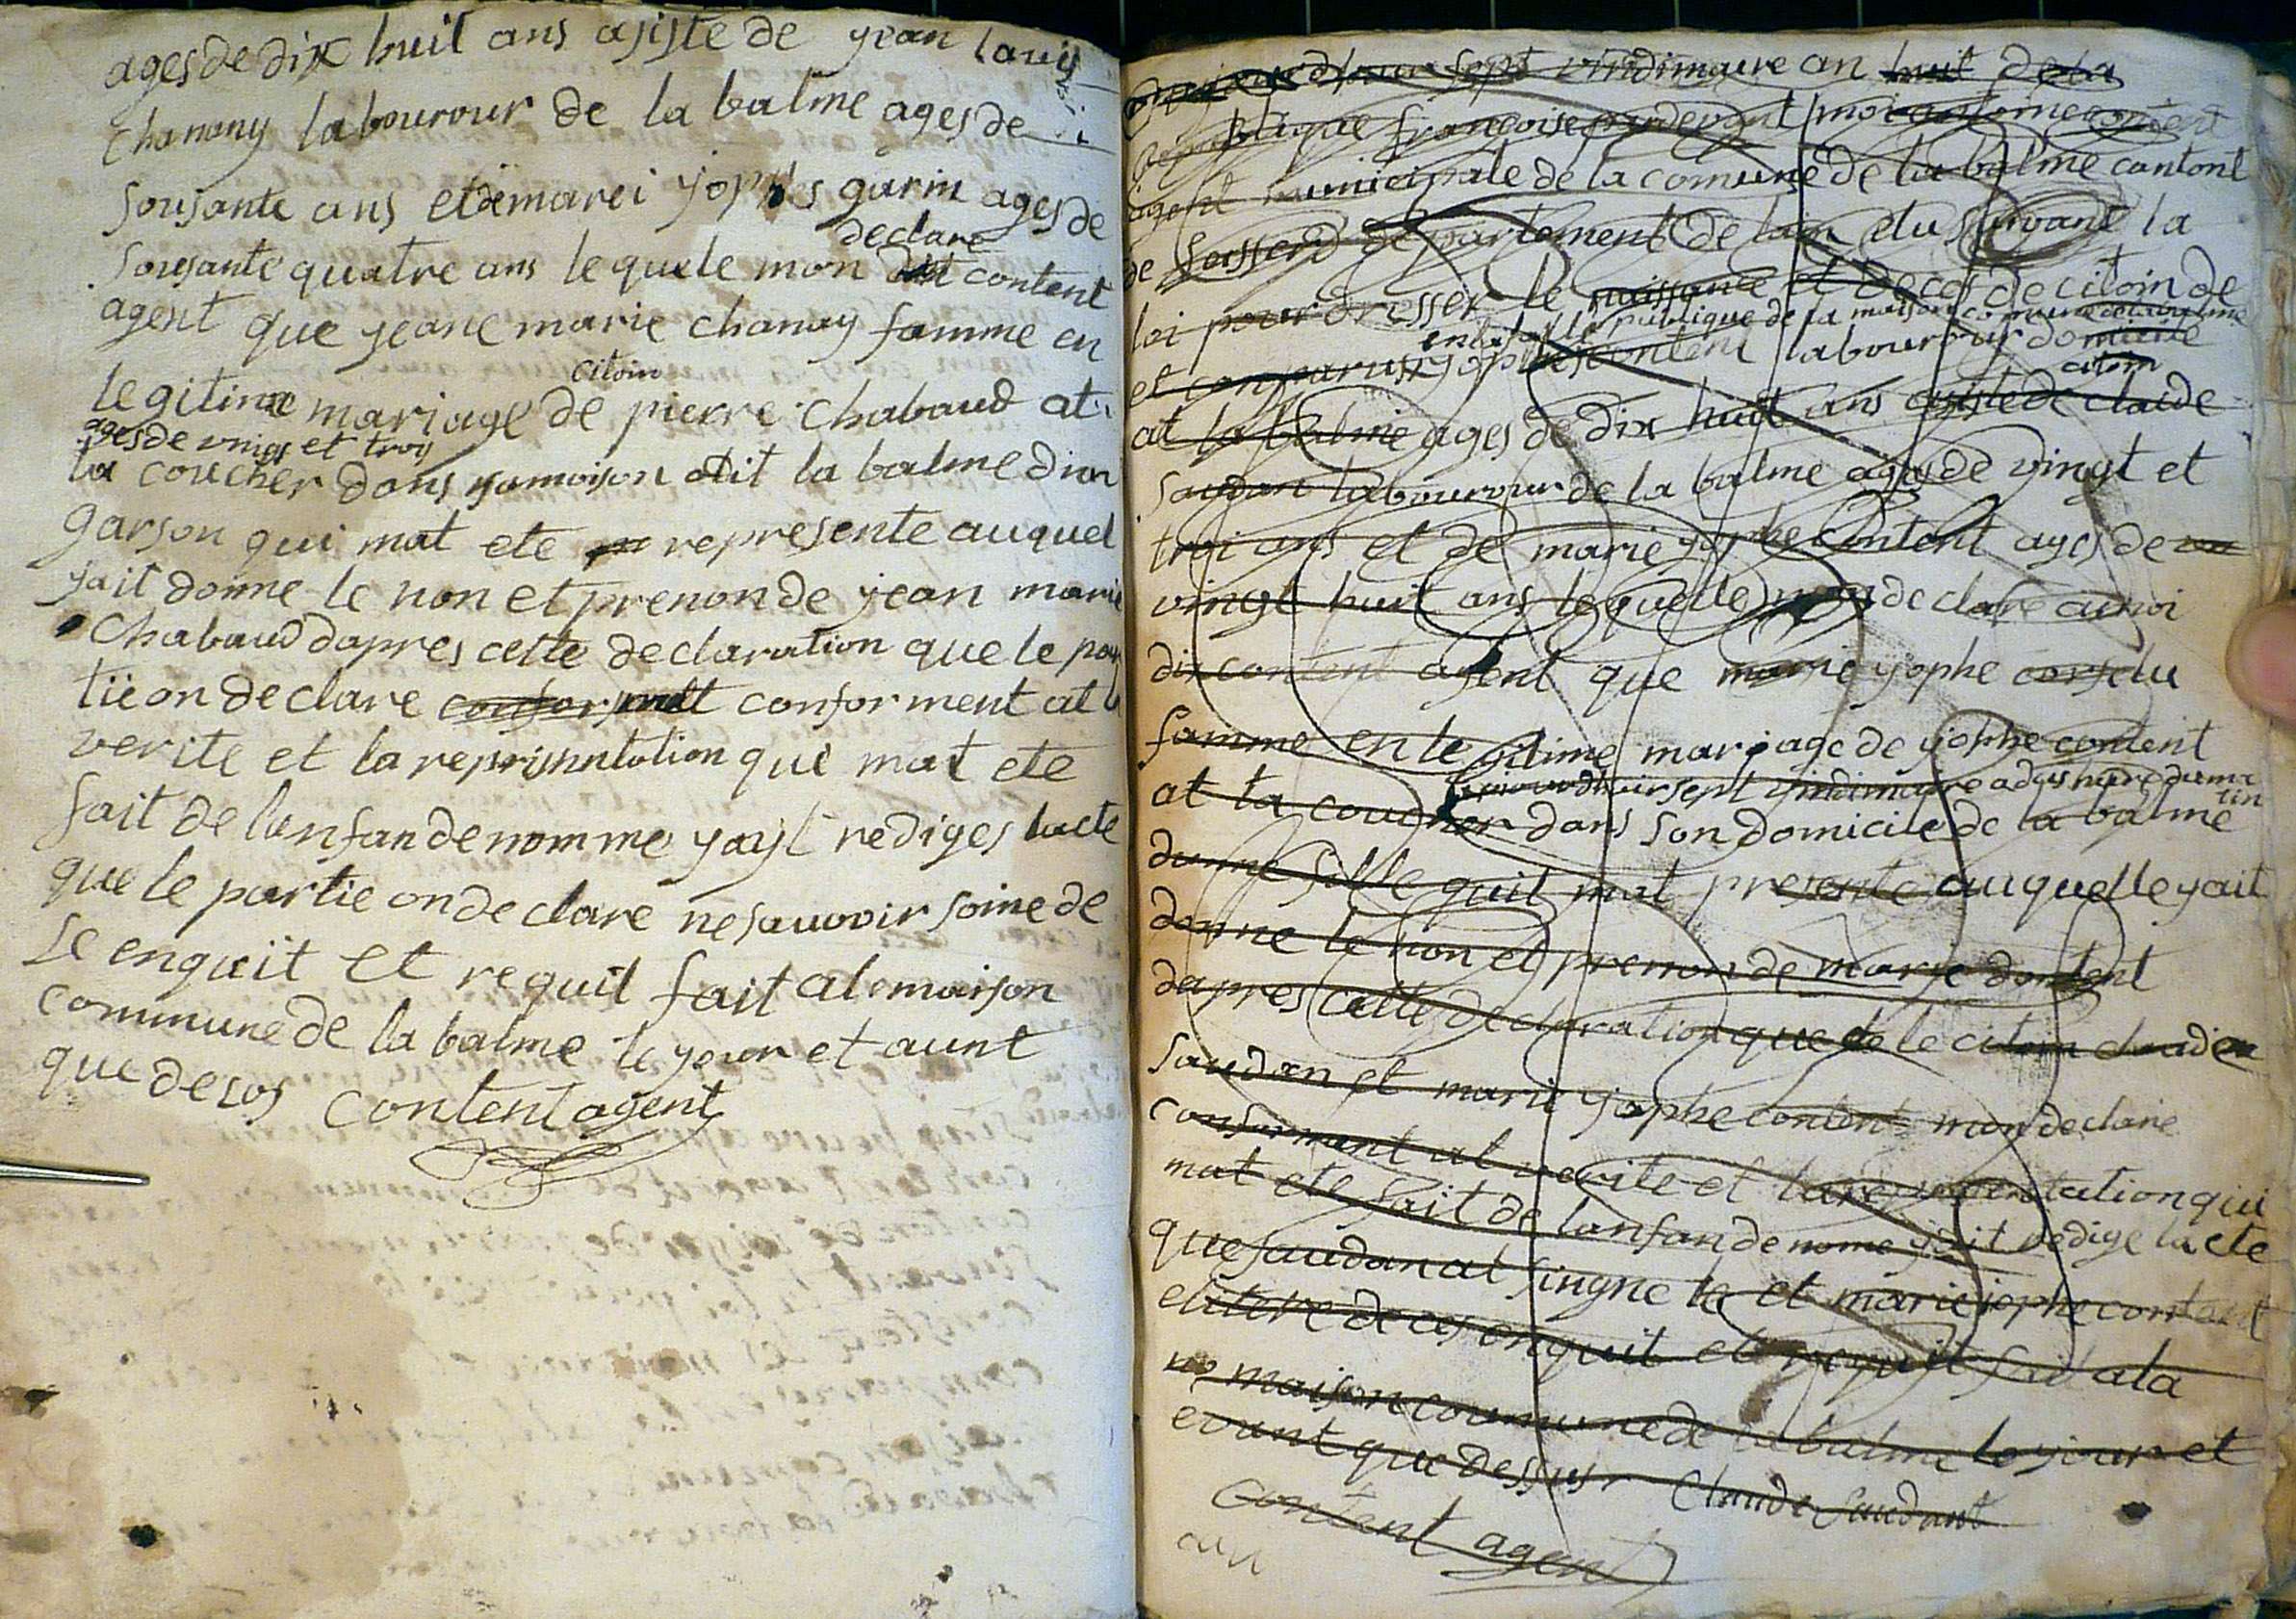 ages de dix huit ans asiste de yean louis
Chanany labourour de la balme ages de
sousante ans et de marei yophes garin ages de
declare
sousante quatre ans le quele mon dit content
agent que yeane marie chanay famme en
citoin
legitime mariage de pierre Chabaud at
ages de vings et troy
la coucher dans samoison dit la balme dun
garson qui mat ete represente auquel
yait donne le non et prenon de yean marie
Chabaud dapres cette declaration que le par
tiëon declare conforment conforment at la
verite et la representation que mat ete
fait de lenfan denomme yayt rediges lacte
que le partie on declare ne sauvoir soine de
Le enquit et requit fait ale maison
commune de la balme le your et aunt
que desos Content agent
sept vindimaire an huit de la
Republique francoise pardevant moi antoine content
agent municipale de la comune de la balme cantont
de departement de lain elu suivant la
loi pour dresser le naissance et deces de citoin de
en la salle publique de la maison comune
et comparus yophes content labourour domicile
citoin
at la balme ages de dix huit ans asiste de claude
saudan labourour de la balme ages de vingt et
troi ans et de marie yophe content ages de
vingt huit ans lequelle mon declare a moi
dit content agent que marie yophe
famme en legitime mariage de yophe content
sept vindimaire a dis hure du ma
tin
at la coucher dans son domicile de la balme
dunne fille quit mat presente auquelle yait
donne le non et prenon de marie content
dapres cette declaration que le citoin claude
saudan et marie yophe content mon declare
conforment at verite et la representation qui
mat ete fait de lanfan denome yait redige lacte
que saudan at singne et marie jophe content
elitere de ces enquit et requit fait a la
maison commune de la balme le your et
evant que dessus Claude Saudant
Content agent